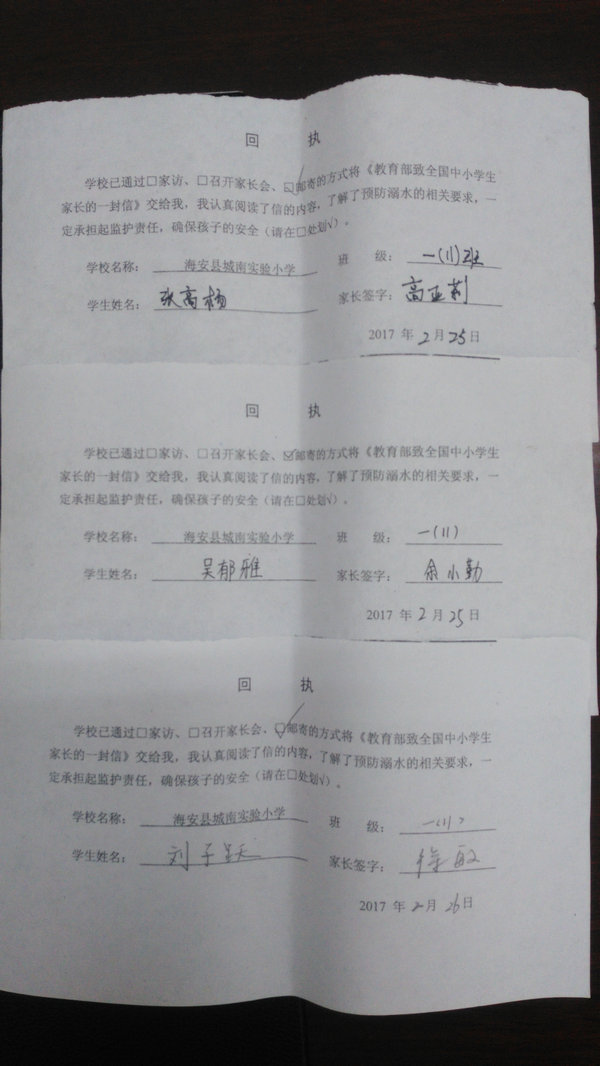 回 执
学校已通过□家访、□召开家长会、☑邮寄的方式将《教育部致全国中小学生
家长的一封信》交给我，我认真阅读了信的内容，了解了预防溺水的相关要求，一
定承担起监护责任，确保孩子的安全（请在□处划√）。
学校名称： 海安县城南实验小学 班 级： 一(11)班
学生姓名： 张高杨 家长签字： 高亚莉
2017 年 2 月 25 日
回 执
学校已通过□家访、□召开家长会、☑邮寄的方式将《教育部致全国中小学生
家长的一封信》交给我，我认真阅读了信的内容，了解了预防溺水的相关要求，一
定承担起监护责任，确保孩子的安全（请在□处划√）。
学校名称： 海安县城南实验小学 班 级： 一(11)
学生姓名： 吴郁雅 家长签字： 小勤
2017 年 2 月 25 日
回 执
学校已通过□家访、□召开家长会、☑邮寄的方式将《教育部致全国中小学生
家长的一封信》交给我，我认真阅读了信的内容，了解了预防溺水的相关要求，一
定承担起监护责任，确保孩子的安全（请在□处划√）。
学校名称： 海安县城南实验小学 班 级： 一(11)
学生姓名： 刘子跃 家长签字： 徐敏
2017 年 2 月 26 日